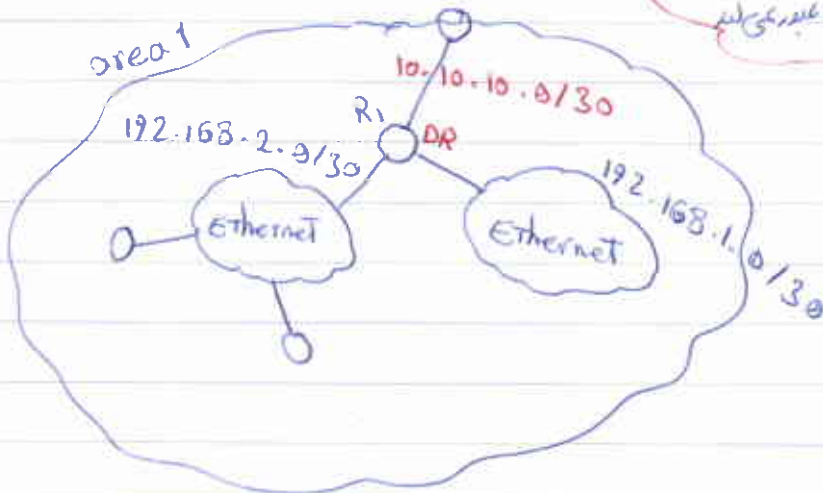 area 1
10.10.10.0/30
R1
DR
192.168.2.0/30
192.168.1.0/30
Ethernet
Ethernet